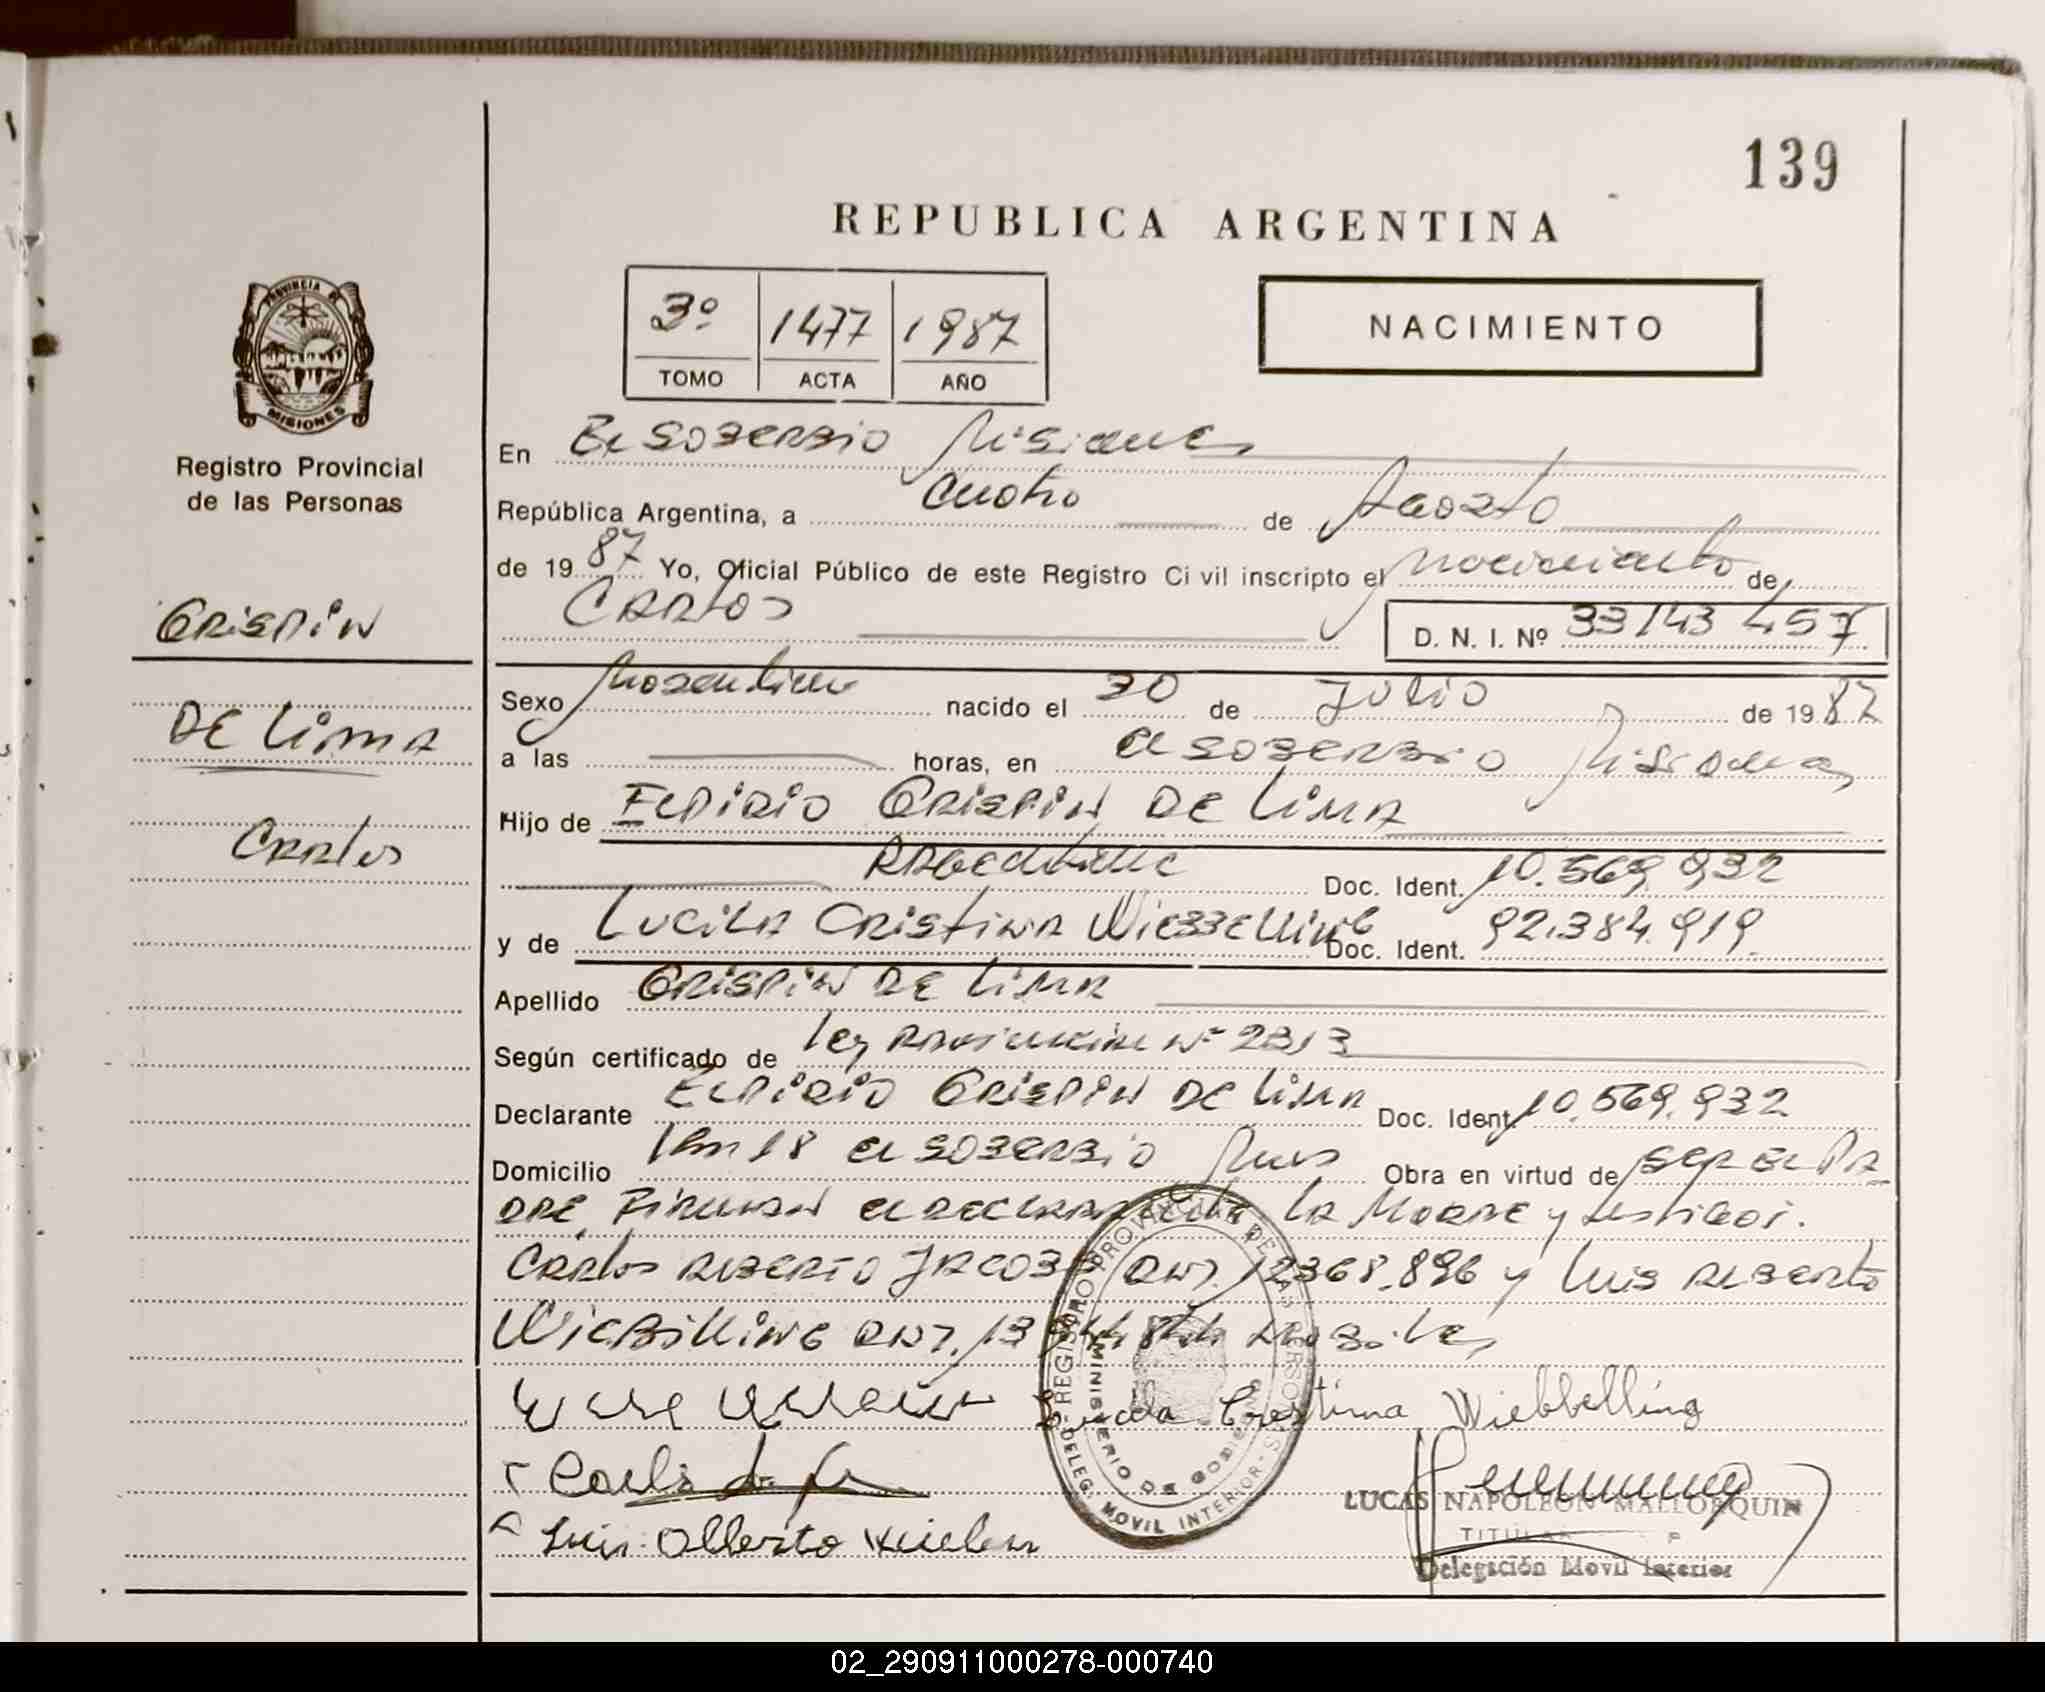 139
REPUBLICA ARGENTINA
3º 1477 1987
TOMO ACTA AÑO
NACIMIENTO
PROVINCIA DE
MISIONES
Registro Provincial
de las Personas
CRISPIN
DE LIMA
CARLOS
En El SOBERBIO Misiones
República Argentina, a cuatro de Agosto
de 1987 Yo, Oficial Público de este Registro Civil inscripto el nacimiento de
CARLOS D. N. I. Nº 33143457
Sexo Masculino nacido el 30 de JULIO de 1987
a las horas, en El SOBERBIO Misiones
Hijo de ELPIDIO CRISPIN DE LIMA
ARGENTINO Doc. Ident. 10.569.932
y de LUCILA CRISTINA WIEBBELLING Doc. Ident. 92.384.919
Apellido CRISPIN DE LIMA
Según certificado de Ley PROVINCIAL Nº 2313
Declarante ELPIDIO CRISPIN DE LIMA Doc. Ident. 10.569.932
Domicilio Km 18 El SOBERBIO Mnes Obra en virtud de SER El PA
DRE, FIRMAN El DECLARANTE LA MADRE y testigos.
CARLOS ALBERTO JACOB DNI. 12368.896 y LUIS ALBERTO
WIEBILLING DNI. 13
Lucila Cristina Wiebbelling
Carlos
Luis Alberto
REGISTRO PROVINCIAL DE LAS PERSONAS
MINISTERIO DE GOBIERNO
DELEG. MOVIL INTERIOR
LUCAS NAPOLEON MALLORQUIN
TITULAR
Delegación Movil Interior
02_290911000278-000740